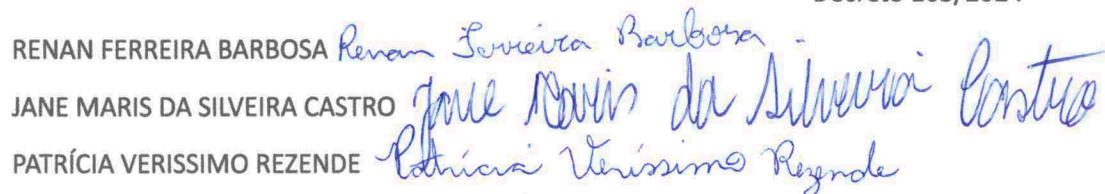 RENAN FERREIRA BARBOSA Renan Ferreira Barbosa
JANE MARIS DA SILVEIRA CASTRO Jane Maris da Silveira Castro
PATRÍCIA VERISSIMO REZENDE Patrícia Veríssimo Rezende